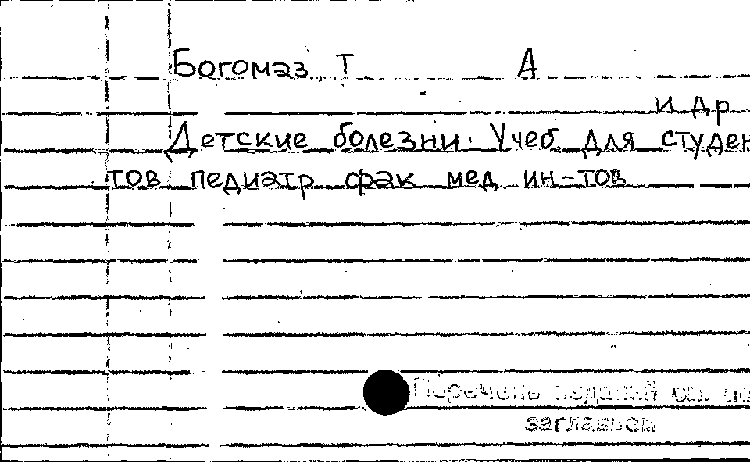 Богомаз Т А
и др
Детские болезни. Учеб для студен
тов педиатр фак мед ин-тов
Перечень изданий см. на
заглавном